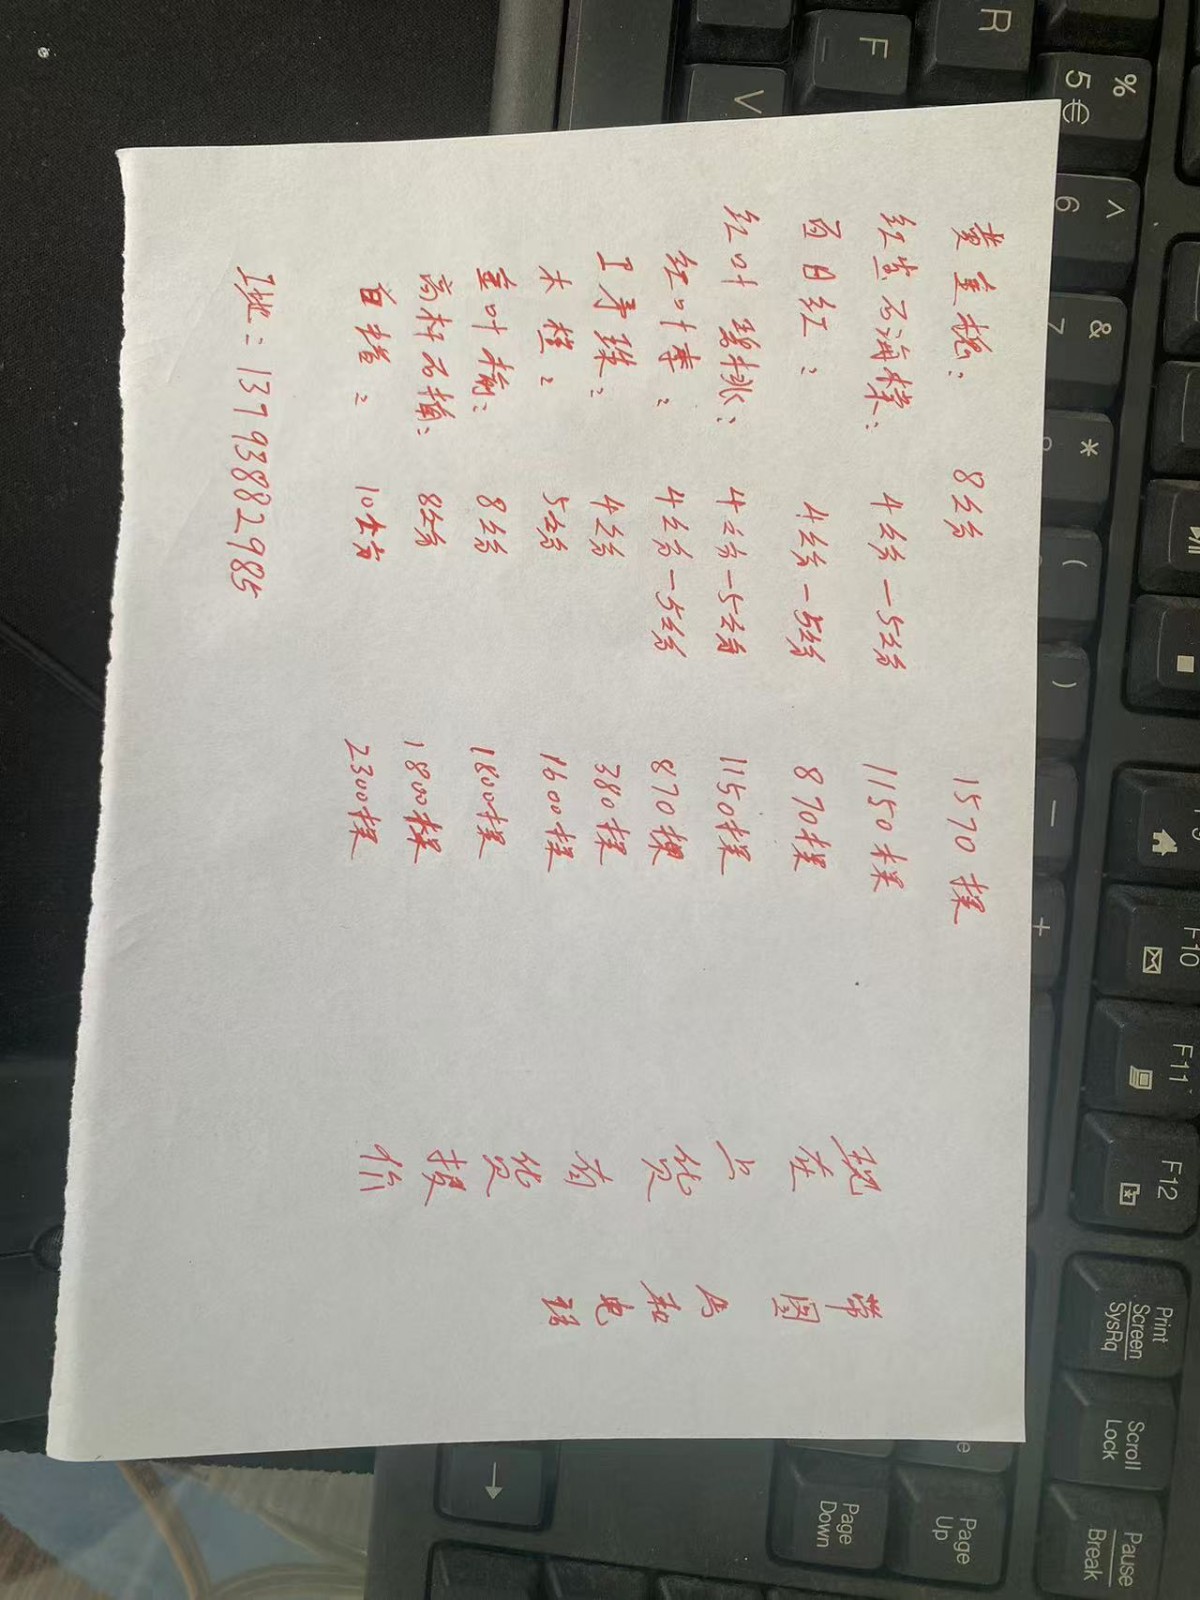 黄金槐: 8公分 1570棵
红宝石海棠: 4公分-5公分 1150棵
百日红: 4公分-5公分 870棵
红叶碧桃: 4公分-5公分 1150棵
红叶李: 4公分-5公分 870棵
王寿珠: 4公分 380棵
木槿: 5公分 1600棵
金叶榆: 8公分 1800棵
高杆石楠: 8公分 1800棵
白蜡: 10公分 2300棵
工地: 13793882985
现在上货有货报价
带图片和电话
R
F
V
% 5 €
^ 6
& 7
* 8
(
)
-
+
F10
F11
F12
Print Screen SysRq
Scroll Lock
Pause Break
Page Up
Page Down